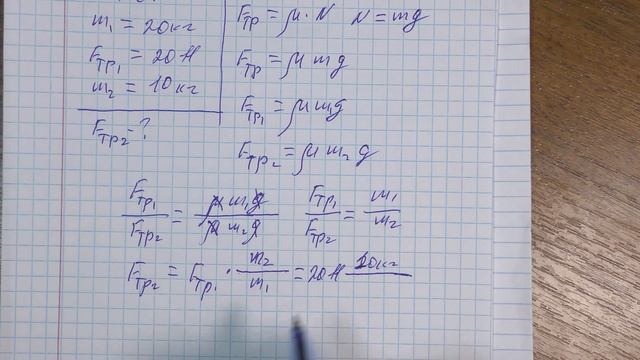 m₁ = 20кг
Fтр₁ = 20 Н
m₂ = 10кг
Fтр₂ - ?
Fтр = μ · N N = mg
Fтр = μ mg
Fтр₁ = μ mg
Fтр₂ = μ m₂ g
Fтр₁ / Fтр₂ = μ m₁g / μ m₂g Fтр₁ / Fтр₂ = m₁ / m₂
Fтр₂ = Fтр₁ · m₂ / m₁ = 20Н 10кг